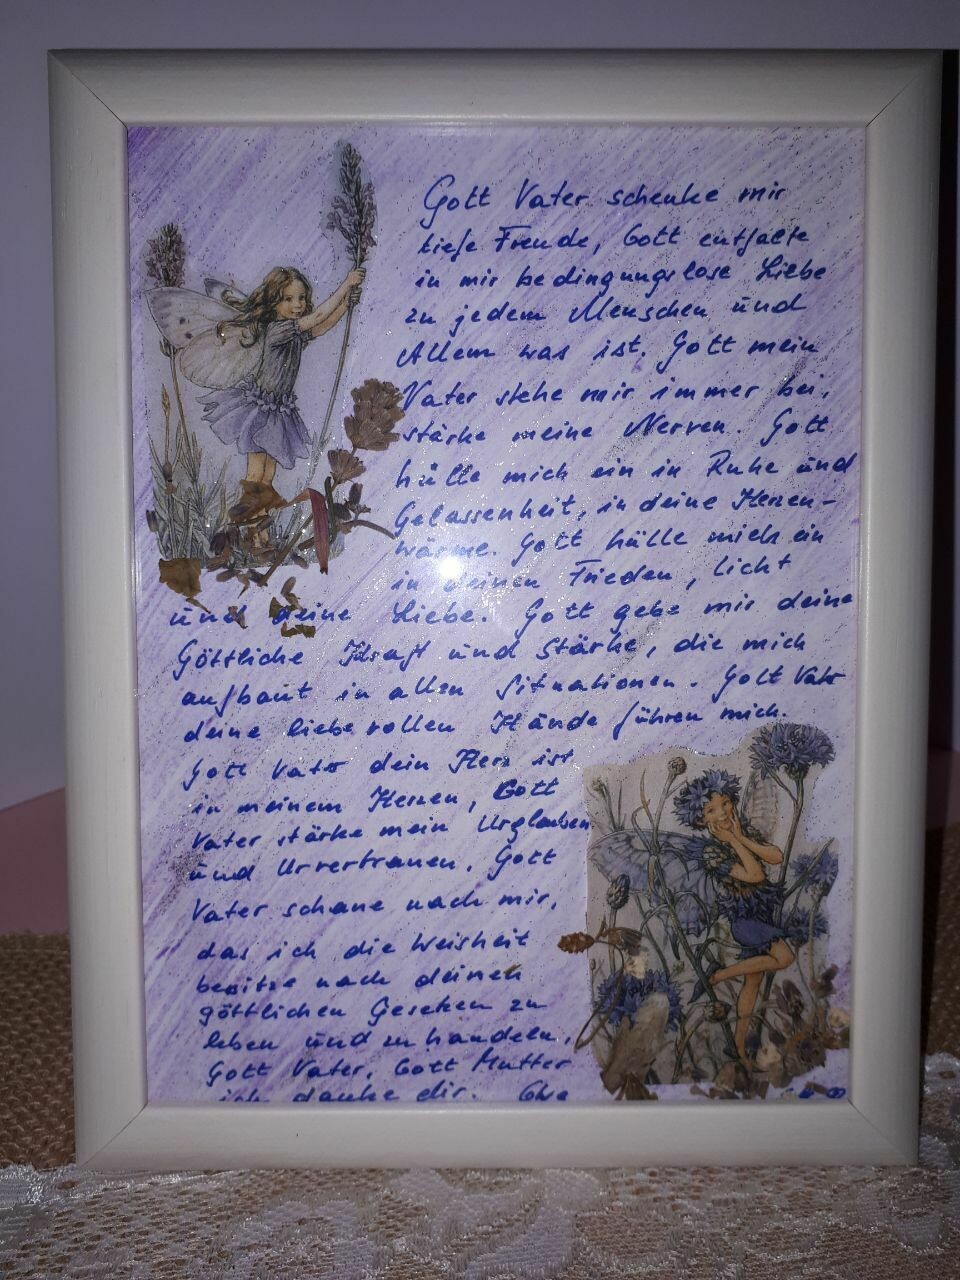 Gott Vater schenke mir
tiefe Freude, Gott entfalte
in mir bedingungslose Liebe
zu jedem Menschen und
Allem was ist. Gott mein
Vater stehe mir immer bei,
stärke meine Nerven. Gott
hülle mich ein in Ruhe und
Gelassenheit, in deine Herzen-
wärme. Gott hülle mich ein
in deinen Frieden, Licht
und deine Liebe. Gott gebe mir deine
Göttliche Kraft und Stärke, die mich
aufbaut in allen Situationen. Gott Vater
deine liebevollen Hände führen mich.
Gott Vater dein Herz ist
in meinem Herzen, Gott
Vater stärke mein Urglauben
und Urvertrauen. Gott
Vater schaue nach mir,
das ich die Weisheit
besitze nach deinen
göttlichen Gesetzen zu
leben und zu handeln,
Gott Vater, Gott Mutter
ich danke dir.